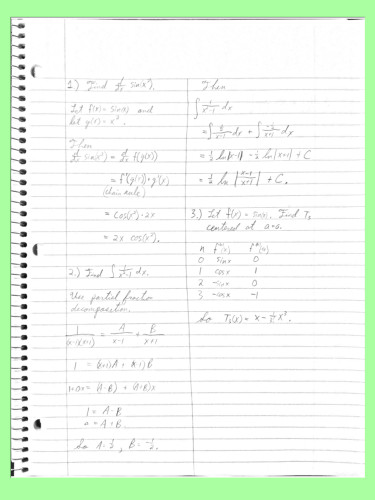 1.) Find d/dx sin(x²).
Let f(x) = sin(x) and
let g(x) = x².
Then
d/dx sin(x²) = d/dx f(g(x))
= f'(g(x))·g'(x)
(chain rule)
= cos(x²)·2x
= 2x cos(x²).
2.) Find ∫ 1/(x²-1) dx.
Use partial fraction
decomposition.
1/((x-1)(x+1)) = A/(x-1) + B/(x+1)
1 = (x+1)A + (x-1)B
1+0x = (A-B) + (A+B)x
1 = A-B
0 = A+B
So A = 1/2, B = -1/2.
Then
∫ 1/(x²-1) dx
= ∫ dx + ∫ dx
= 1/2 ln|x-1| - 1/2 ln|x+1| + C
= 1/2 ln |(x-1)/(x+1)| + C.
3.) Let f(x) = sin(x). Find T₃
centered at a=0.
n f⁽ⁿ⁾(x) f⁽ⁿ⁾(a)
0 sin x 0
1 cos x 1
2 -sin x 0
3 -cos x -1
So T₃(x) = x - x³.